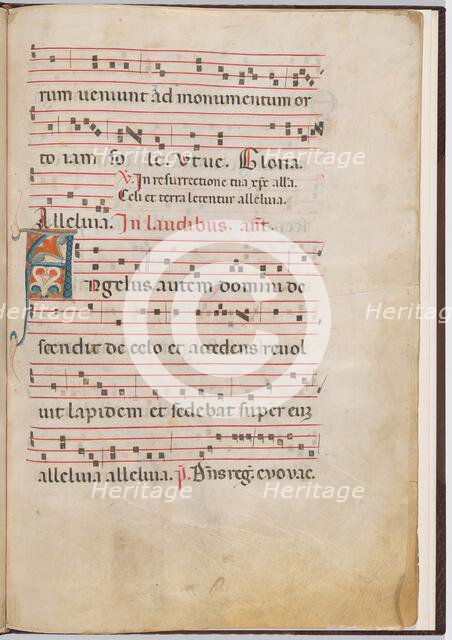 rum veniunt ad monumentum or
to iam so le. Vt ve. Gloria.
V. In resurrectione tua xpe alla.
Celi et terra letentur alleluia.
Alleluia. In laudibus. ant.
Angelus autem domini de
scendit de celo et accedens revol
vit lapidem et sedebat super euz
alleluia alleluia. p. Dns reg. evovae.
Heritage
Heritage
Heritage
Heritage
Heritage
Heritage
Heritage
Heritage
Heritage